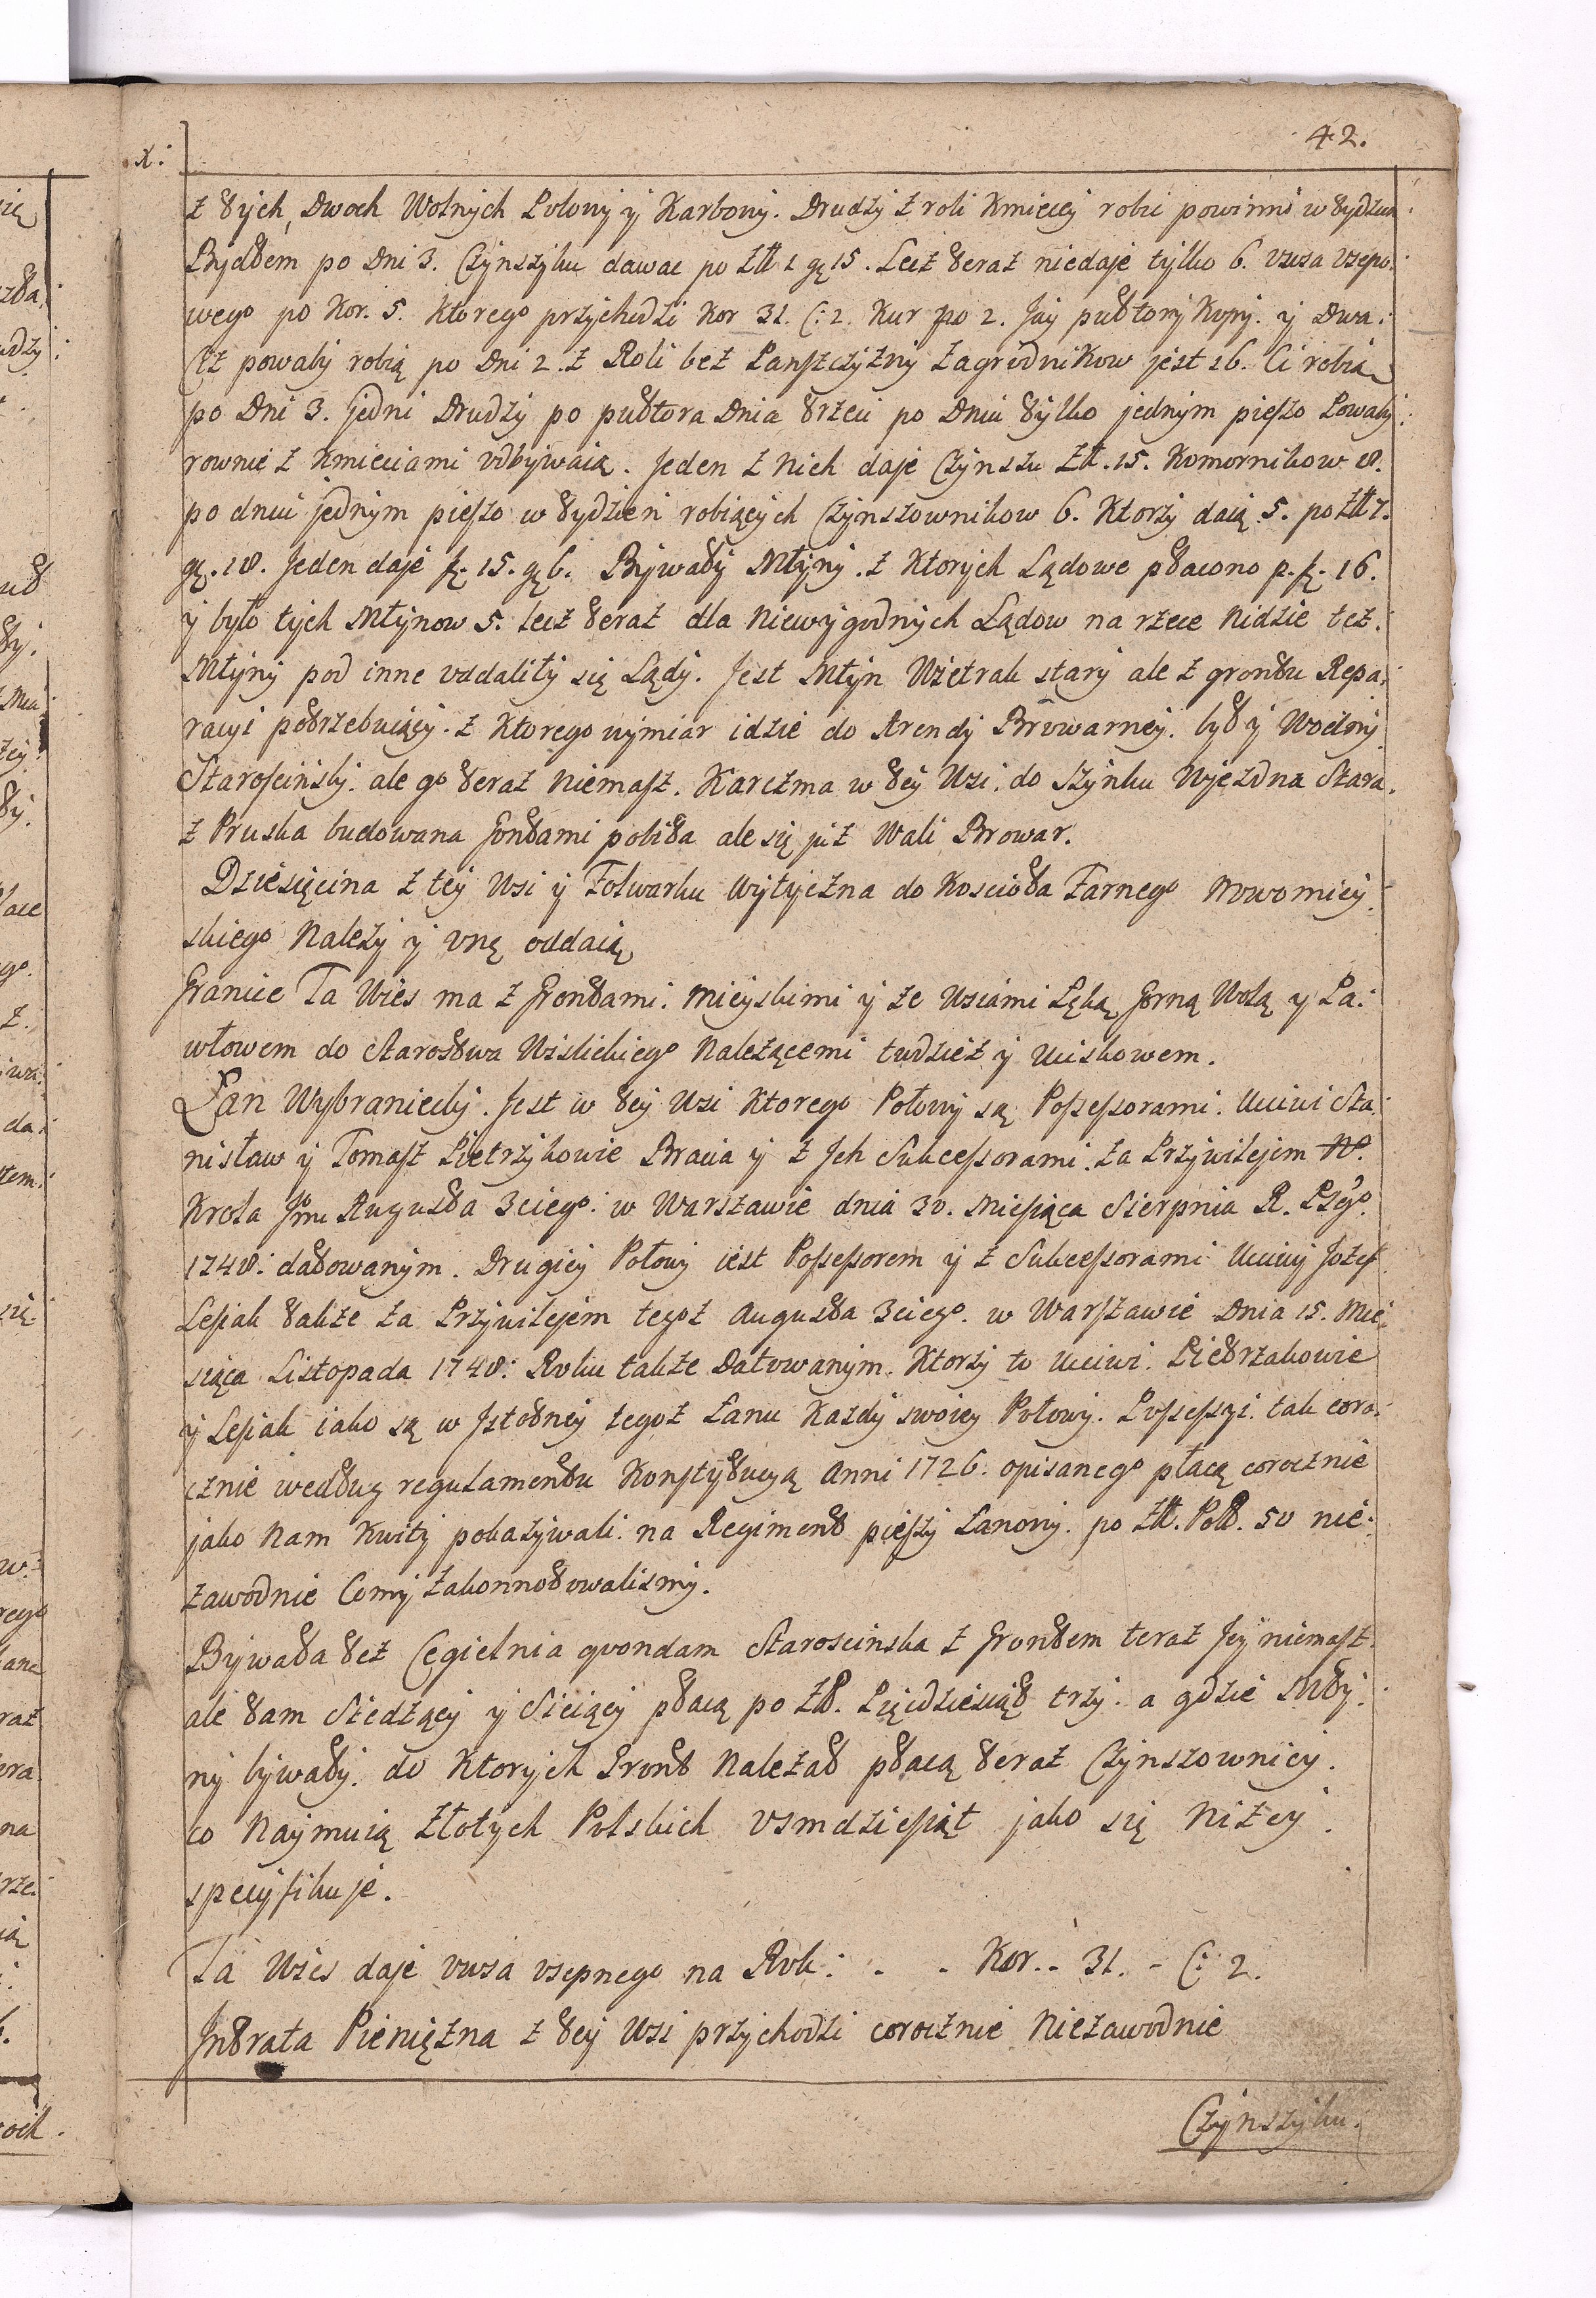 42.
x:
z tych, Dwoch Wolnych Polowy y Karbowy. Drudzy z roli Kmiecey robić powinni w tydzien
Bydłem po Dni 3. Czynszyku dawac po Złł 1 gę 15. Lecz teraz niedaje tylko 6. owsa osepo:
wego po Kor. 5. Ktorego przychodzi Kor 31. C: 2. Kur po 2. Jay pułtory Kopy. y Dwa:
Cż powaby robią po Dni 2. z Roli bez Panszczyzny Zagrodnikow jest 16. Ci robią
po Dni 3. jedni Drudzy po pułtora Dnia trzeci po Dniu tylko jednym pieszo Powaby:
rownie z Kmieciami odbywaią. Jeden z Nich daje Czynszu Zł. 15. Komornikow 18.
po dniu jednym pieszo w tydzień robiących Czynszownikow 6. Ktorzy daią 5. po Złł 7.
gę. 18. Jeden daje fę. 15. gę 6. Bywały Młyny. z Ktorych Lądowe płacono p. fę. 16.
y było tych Młynow 5. lecz teraz dla Niewygodnych Lądow na rzece Nidzie tez.
Młyny pod inne oddaliły się Lądy. Jest Młyn Wietrak stary ale z grontu Repa:
racyi potrzebuiący. z Ktorego wymiar idzie do Arendy Browarney. był y Wodny
Starościnsky. ale go teraz Niemasz. Karczma w tey Wsi. do Szynku Wjezdna Stara.
z Pruska budowana Gontami pobita ale się już Wali Browar.
Dziesięcina z tey Wsi y Folwarku Wytyczna do Kościoła Farnego Nowomiey
skiego Nalezy y onę oddaią
Granice Ta Wies ma z Grontami. Mieyskimi y ze Wsiami Łęką Gorną Wolą y Pa:
włowem do Starostwa Wislickiego Nalezącemi tudziez y Uciskowem.
Łan Wybraniecky. Jest w tey Wsi Ktorego Połowy są Possessorami. Uciwi Sta
nisław y Tomasz Pietrzykowie Bracia y z Jch Sukcessorami. za Przywilejem
Krola Jmci Augusta 3ciego. w Warszawie dnia 30. Miesiąca Sierpnia R. Pźgo.
1748: datowanym. Drugiey Połowy iest Possessorem y z Sukcessorami Uciwy Jozef
Lesiak także za Przywilejem tegoz Augusta 3ciego. w Warszawie Dnia 15. Mie:
siąca Listopada 1748: Roku takze Datowanym. Ktorzy to Uciwi. Pietrzakowie
y Lesiak iako są w Jstotney tegoz Łanu Kazdy swoiey Połowy. Possessyi. tak coro:
cznie według regulamentu Konstytucyą Anni 1726. opisanego płacą corocznie
jako Nam Kwity pokazywali. na Regiment pieszy Łanowy. po Złł. Poł. 50 nie:
zawodnie Comy zakonnotowalismy.
Bywała tez Cegielnia quondam Staroscinska z Grontem teraz Jey niemasz.
ale tam Siedzący y Sieiący płacą po Zł. Pięcdziesiąt trzy. a gdzie Mły:
ny bywały. do Ktorych Gront Nalezał płacą teraz Czynszownicy.
co Naymuią Złotych Polskich osmdziesiąt jako się Nizey.
specyfikuje.
Ta Wies daje owsa osepnego na Rok: . . Kor. . 31. - C: 2.
Jntrata Pienięzna z tey Wsi przychodzi corocznie Niezawodnie
Czynszyku.